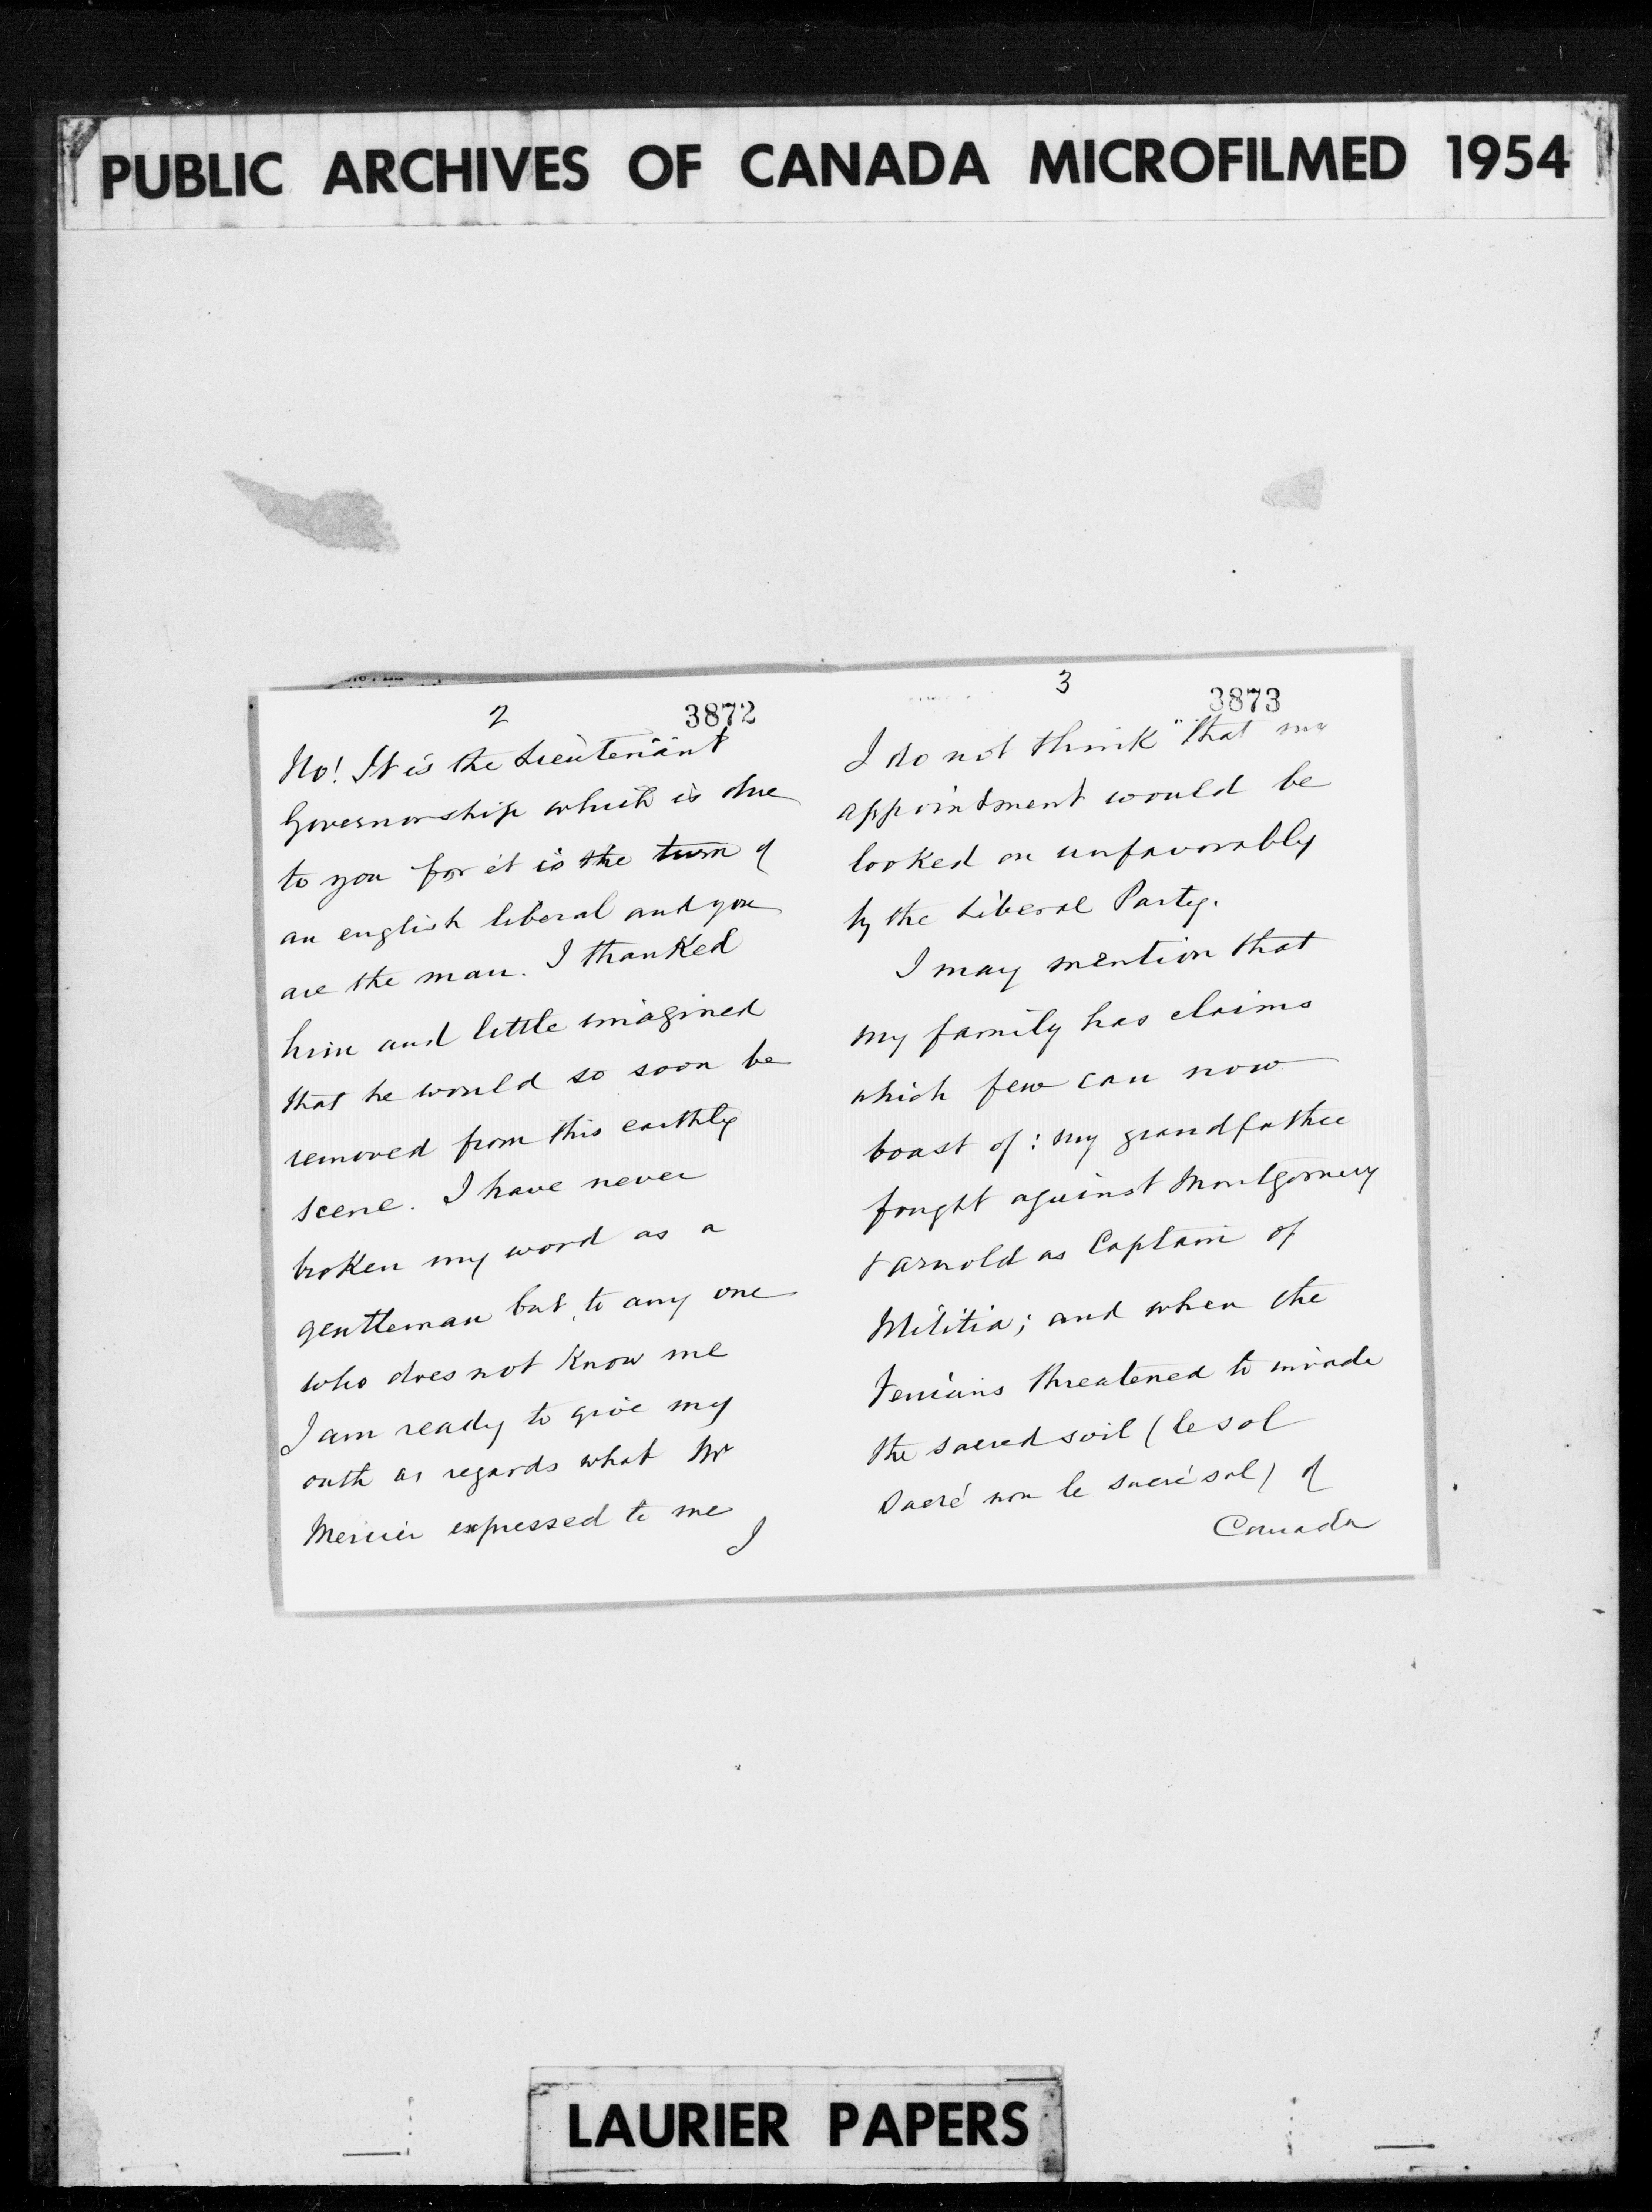 PUBLIC ARCHIVES OF CANADA MICROFILMED 1954
2
3872
No! It is the Lieutenant
Governorship which is due
to you for it is the turn of
an english liberal and you
are the man. I thanked
him and little imagined
that he would so soon be
removed from this earthly
scene. I have never
broken my word as a
gentleman but, to any one
who does not know me
I am ready to give my
outh as regards what Mr
Mercier expressed to me
I
3
3873
I do not think that my
appointment would be
looked on unfavorably
by the Liberal Party.
I may mention that
my family has claims
which few can now
boast of: my grandfather
fought against Montgomery
& Arnold as Captain of
Militia; and when the
Fenians threatened to invade
the sacred soil (le sol
sacré non le sacré sol) of
Canada
LAURIER PAPERS